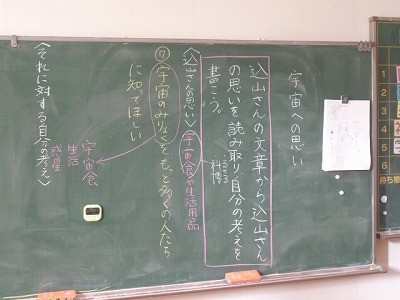 宇宙への思い
込山さんの文章から込山さん
の思いを読み取り、自分の考えを
書こう。
科博
〈込山さんの思い〉宇宙食や生活用品
⑦宇宙のみりょくをもっと多くの人たち
に知ってほしい
宇宙食
生活
惑星
〈それに対する自分の考え〉
1
2
3
4
5
6
持ち物